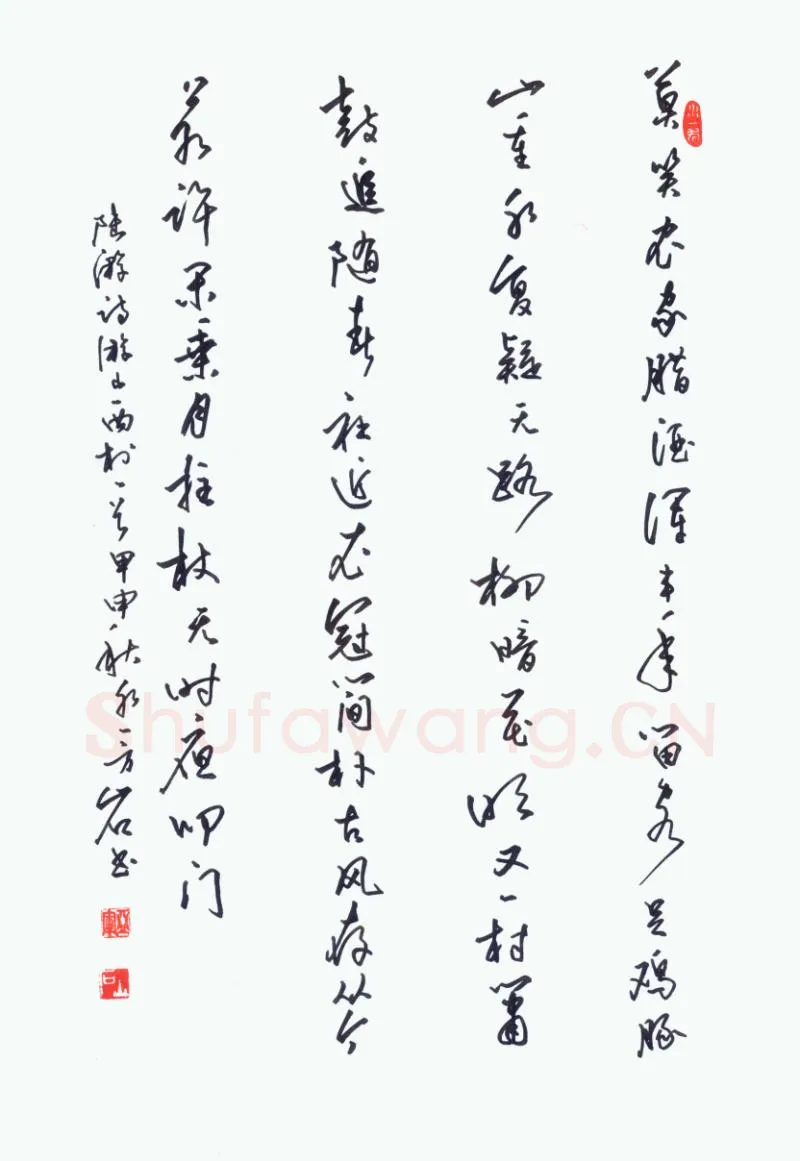 莫笑农家腊酒浑丰年留客足鸡豚
山重水复疑无路柳暗花明又一村箫
鼓追随春社近衣冠简朴古风存从今
若许闲乘月拄杖无时夜叩门
陆游诗游山西村一首甲申秋水一方岩书
Shufawang.CN